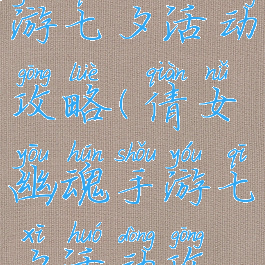 游七夕活动
gōng lüè qiàn nǚ
攻略(倩女
yōu hún shǒu yóu qī
幽魂手游七
xī huó dòng gōng
夕活动攻